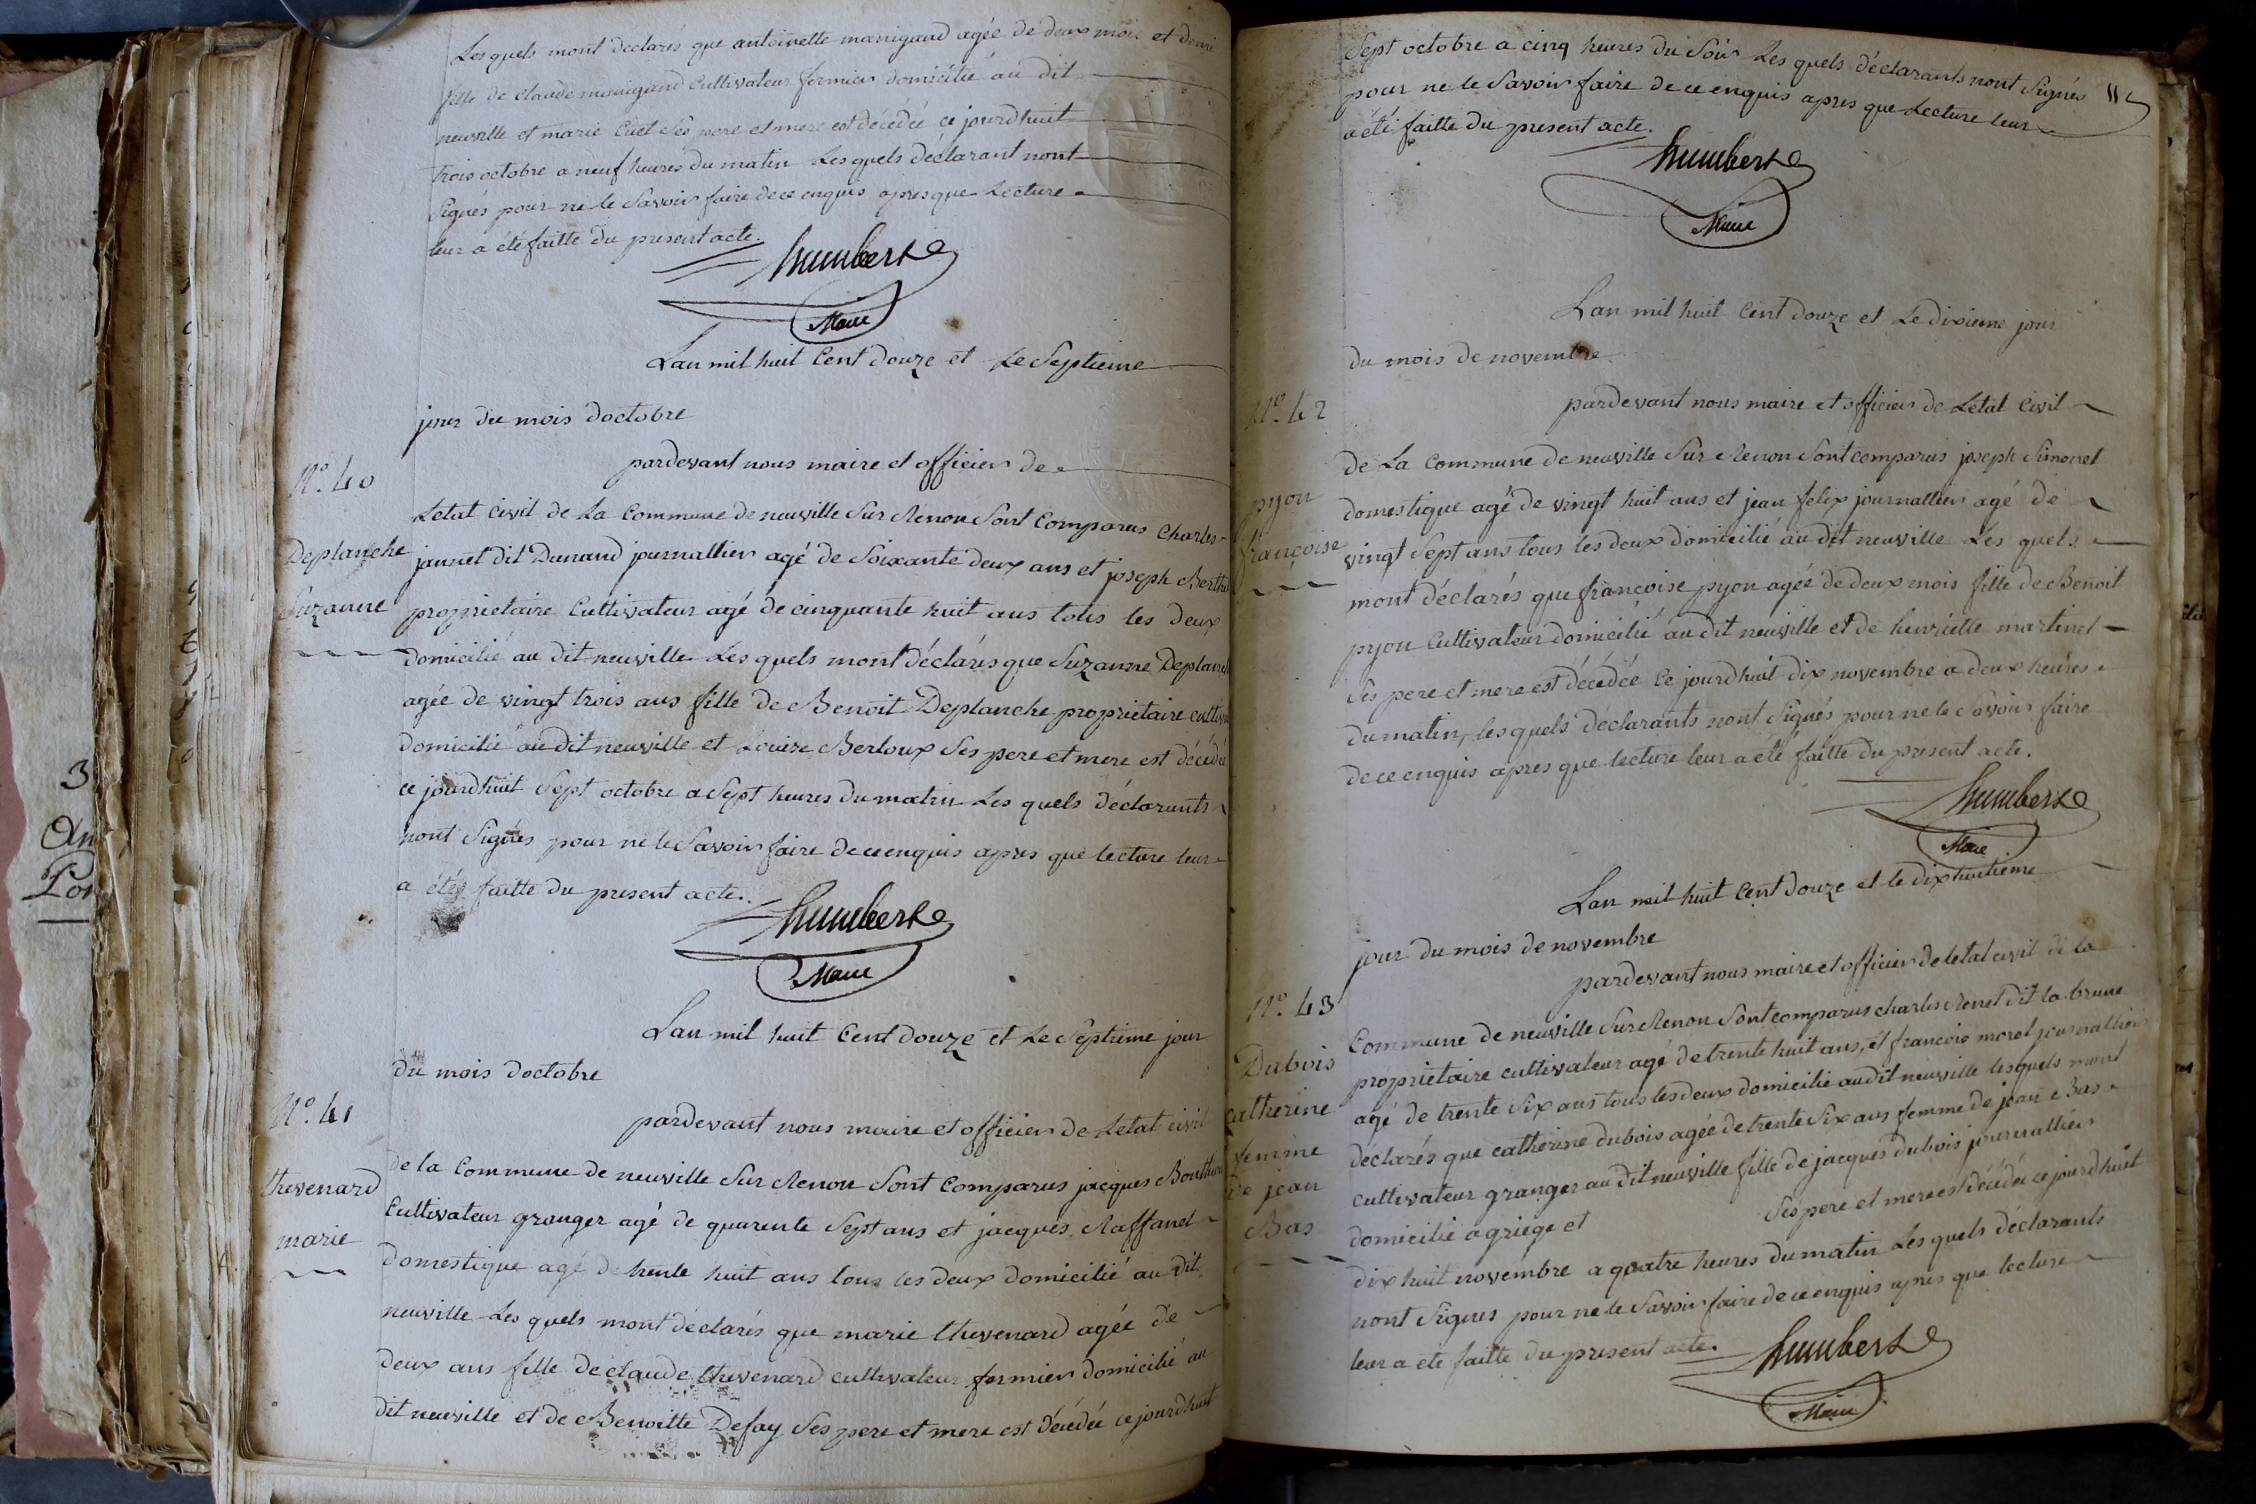 Les quels mont déclarés que antoinette manigand agée de deux mois et demi
fille de claude manigand Cultivateur fermier domicilié au dit
neuville et marie Cuet Ses pere et mere est décédée ce jourdhuit
trois octobre a neuf heures du matin Les quels déclarant nont
Signés pour ne le Savoir faire de ce enquis apres que Lecture
leur a été faitte du present acte.
humbert
Maire
Lan mil huit Cent douze et Le Septieme
jour du mois doctobre
pardevant nous maire et officier de
N°. 40
Letat Civil de La Commune de neuville Sur Renon Sont Comparus Charles
Deplanche
jannet dit Dunand journallier agé de Soixante deux ans et joseph
Suzanne
proprietaire Cultivateur agé de cinquante huit ans tous les deux
domicilié au dit neuville Les quels mont déclarés que Suzanne
agée de vingt trois ans fille de Benoit Deplanche proprietaire
domicilié au dit neuville et Louise Berloux Ses pere et mere est
ce jourdhuit Sept octobre a Sept heures du matin Les quels déclarants
nont Signés pour ne le Savoir faire de ce enquis apres que lecture leur
a étés faitte du present acte.
humbert
Maire
Lan mil huit Cent douze et Le Septieme jour
du mois doctobre
N°. 41
pardevant nous maire et officier de Letat civil
de la Commune de neuville Sur Renon Sont Comparus jacques
thevenard
Cultivateur granger agé de quarente Sept ans et jacques Raffanel
marie
domestique agé de trente huit ans tous les deux domicilié au dit
neuville Les quels mont déclarés que marie thevenard agée de
deux ans fille de claude thevenard cultivateur fermier domicilié au
dit neuville et de Benoitte Defay Ses pere et mere est décédée ce jourdhuit
Sept octobre a cinq heures du Soir Les quels déclarants nont Signés
pour ne le Savoir faire de ce enquis apres que Lecture leur
a été faitte du present acte.
humbert
Maire
Lan mil huit Cent douze et Le dixieme jour
du mois de novembre
N°. 42
pardevant nous maire et officier de Letat Civil
de La Commune de neuville Sur Renon Sont comparus joseph Simonet
pyon
domestique agé de vingt huit ans et jean felix journallier agé de
françoise
vingt Sept ans tous les deux domicilié au dit neuville Les quels
mont déclarés que françoise pyon agée de deux mois fille de Benoit
pyon Cultivateur domicilié au dit neuville et de henriette martinet
Ses pere et mere est décédée Ce jourdhuit dix novembre a deux heures
du matin, les quels déclarants nont Signés pour ne le Savoir faire
de ce enquis apres que lecture leur a été faitte du present acte.
humbert
Maire
Lan mil huit Cent douze et le dix huitieme
jour du mois de novembre
pardevant nous maire et officier de letat civil de la
N°. 43
Commune de neuville Sur Renon Sont comparus charles Renet dit la brune
Dubois
proprietaire cultivateur agé de trente huit ans, et francois morel journallier
catherine
agé de trente Six ans tous les deux domicilié au dit neuville les quels mont
femme
déclarés que catherine dubois agée de trente Six ans femme de jean Bas
de jean
cultivateur granger au dit neuville fille de jacques dubois journallier
Bas
domicilié a griege et Ses pere et mere est décédée ce jourdhuit
dix huit novembre a quatre heures du matin Les quels déclarants
nont Signes pour ne le Savoir faire de ce enquis apres que lecture
leur a été faitte du present acte.
humbert
Maire